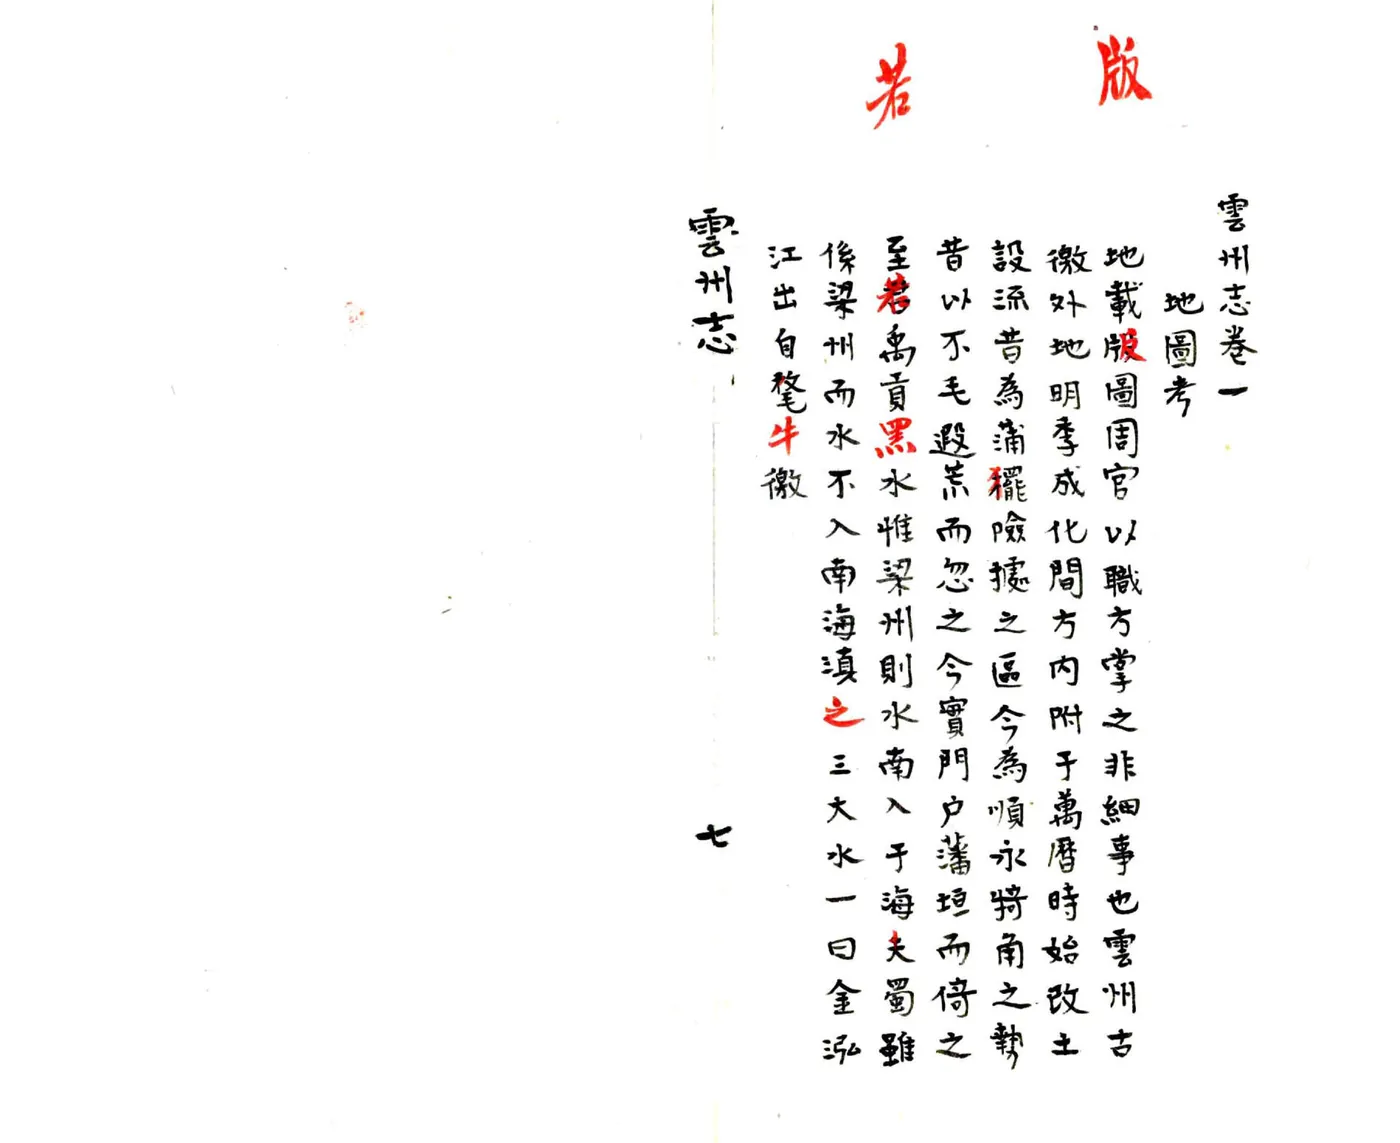 版
若
雲州志卷一
地圖考
地載版圖周官以職方掌之非細事也雲州古
徼外地明季成化間方內附于萬曆時始改土
設流昔為蒲擺險據之區今為順永犄角之勢
昔以不毛遐荒而忽之今實門户藩垣而倚之
至若禹貢黑水惟梁州則水南入于海夫蜀雖
係梁州而水不入南海滇之三大水一曰金泓
江出自氂牛徼
雲州志
七